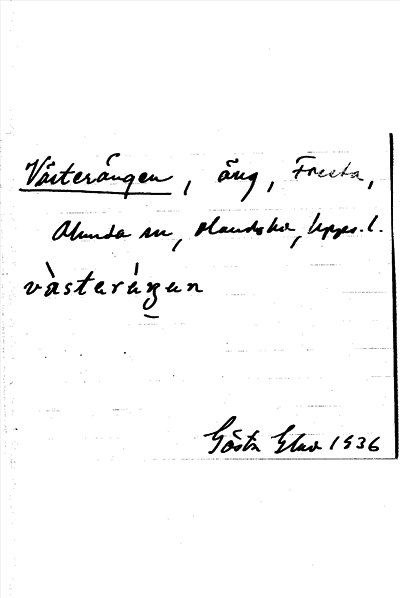 Västerängen, äng, Fresta,
Alunda sn, Olandshd, Upps. l.
vàsteráŋen
Gösta Elav 1936